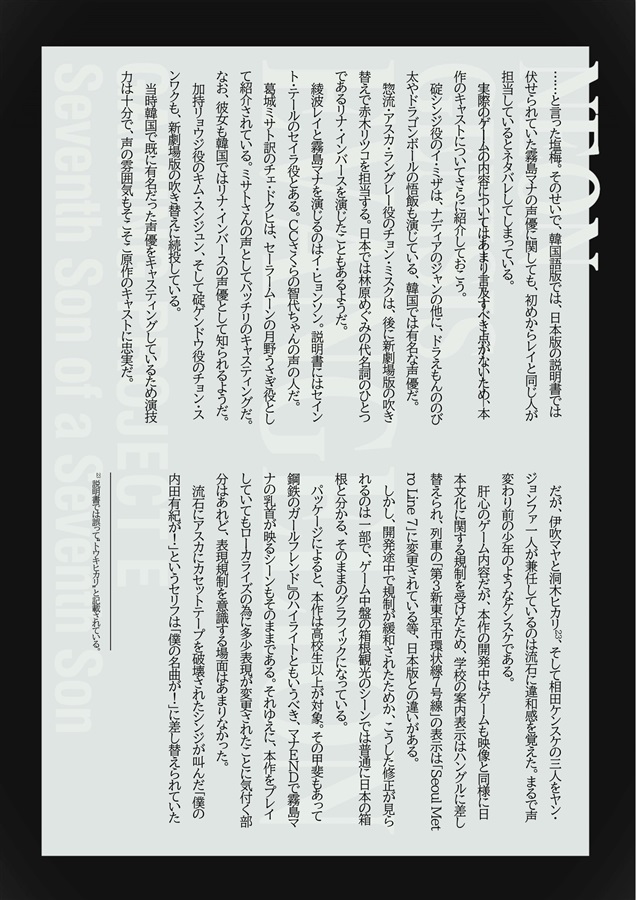 ……と言った塩梅。そのせいで、韓国語版では、日本版の説明書では
伏せられていた霧島マナの声優に関しても、初めからレイと同じ人が
担当しているとネタバレしてしまっている。
実際のゲームの内容についてはあまり言及すべき点がないため、本
作のキャストについてさらに紹介しておこう。
碇シンジ役のイ・ミザは、ナディアのジャンの他に、ドラえもんののび
太やドラゴンボールの悟飯も演じている、韓国では有名な声優だ。
惣流・アスカ・ラングレー役のチョン・ミスクは、後に新劇場版の吹き
替えで赤木リツコを担当する。日本では林原めぐみの代名詞のひとつ
であるリナ・インバースを演じたこともあるようだ。
綾波レイと霧島マナを演じるのはイ・ヒョンソン。説明書にはセイン
ト・テールのセイラ役とある。CCさくらの智代ちゃんの声の人だ。
葛城ミサト訳のチェ・ドクヒは、セーラームーンの月野うさぎ役とし
て紹介されている。ミサトさんの声としてバッチリのキャスティングだ。
なお、彼女も韓国ではリナ・インバースの声優として知られるようだ。
加持リョウジ役のキム・スンジュン、そして碇ゲンドウ役のチョン・ス
ンワクも、新劇場版の吹き替えに続投している。
当時韓国で既に有名だった声優をキャスティングしているため演技
力は十分で、声の雰囲気もそこそこ原作のキャストに忠実だ。
だが、伊吹マヤと洞木ヒカリ、そして相田ケンスケの三人をヤン・
ジョンファ一人が兼任しているのは流石に違和感を覚えた。まるで声
変わり前の少年のようなケンスケである。
肝心のゲーム内容だが、本作の開発中はゲームも映像と同様に日
本文化に関する規制を受けたため、学校の案内表示はハングルに差し
替えられ、列車の「第3新東京市環状線7号線」の表示は「Seoul Met
ro Line 7」に変更されている等、日本版との違いがある。
しかし、開発途中で規制が緩和されたためか、こうした修正が見ら
れるのは一部で、ゲーム中盤の箱根観光のシーンでは普通に日本の箱
根と分かる、そのままのグラフィックになっている。
パッケージによると、本作は高校生以上が対象。その甲斐もあって
鋼鉄のガールフレンド』のハイライトともいうべき、マナENDで霧島マ
ナの乳首が映るシーンもそのままである。それゆえに、本作をプレイ
していてもローカライズの為に多少表現が変更されたことに気付く部
分はあれど、表現規制を意識する場面はあまりなかった。
流石にアスカにカセットテープを破壊されたシンジが叫んだ「僕の
内田有紀が！」というセリフは「僕の名曲が！」に差し替えられていた
説明書では誤って「トウキヒカリ」と記載されている。
Seventh Son of a Seventh Son